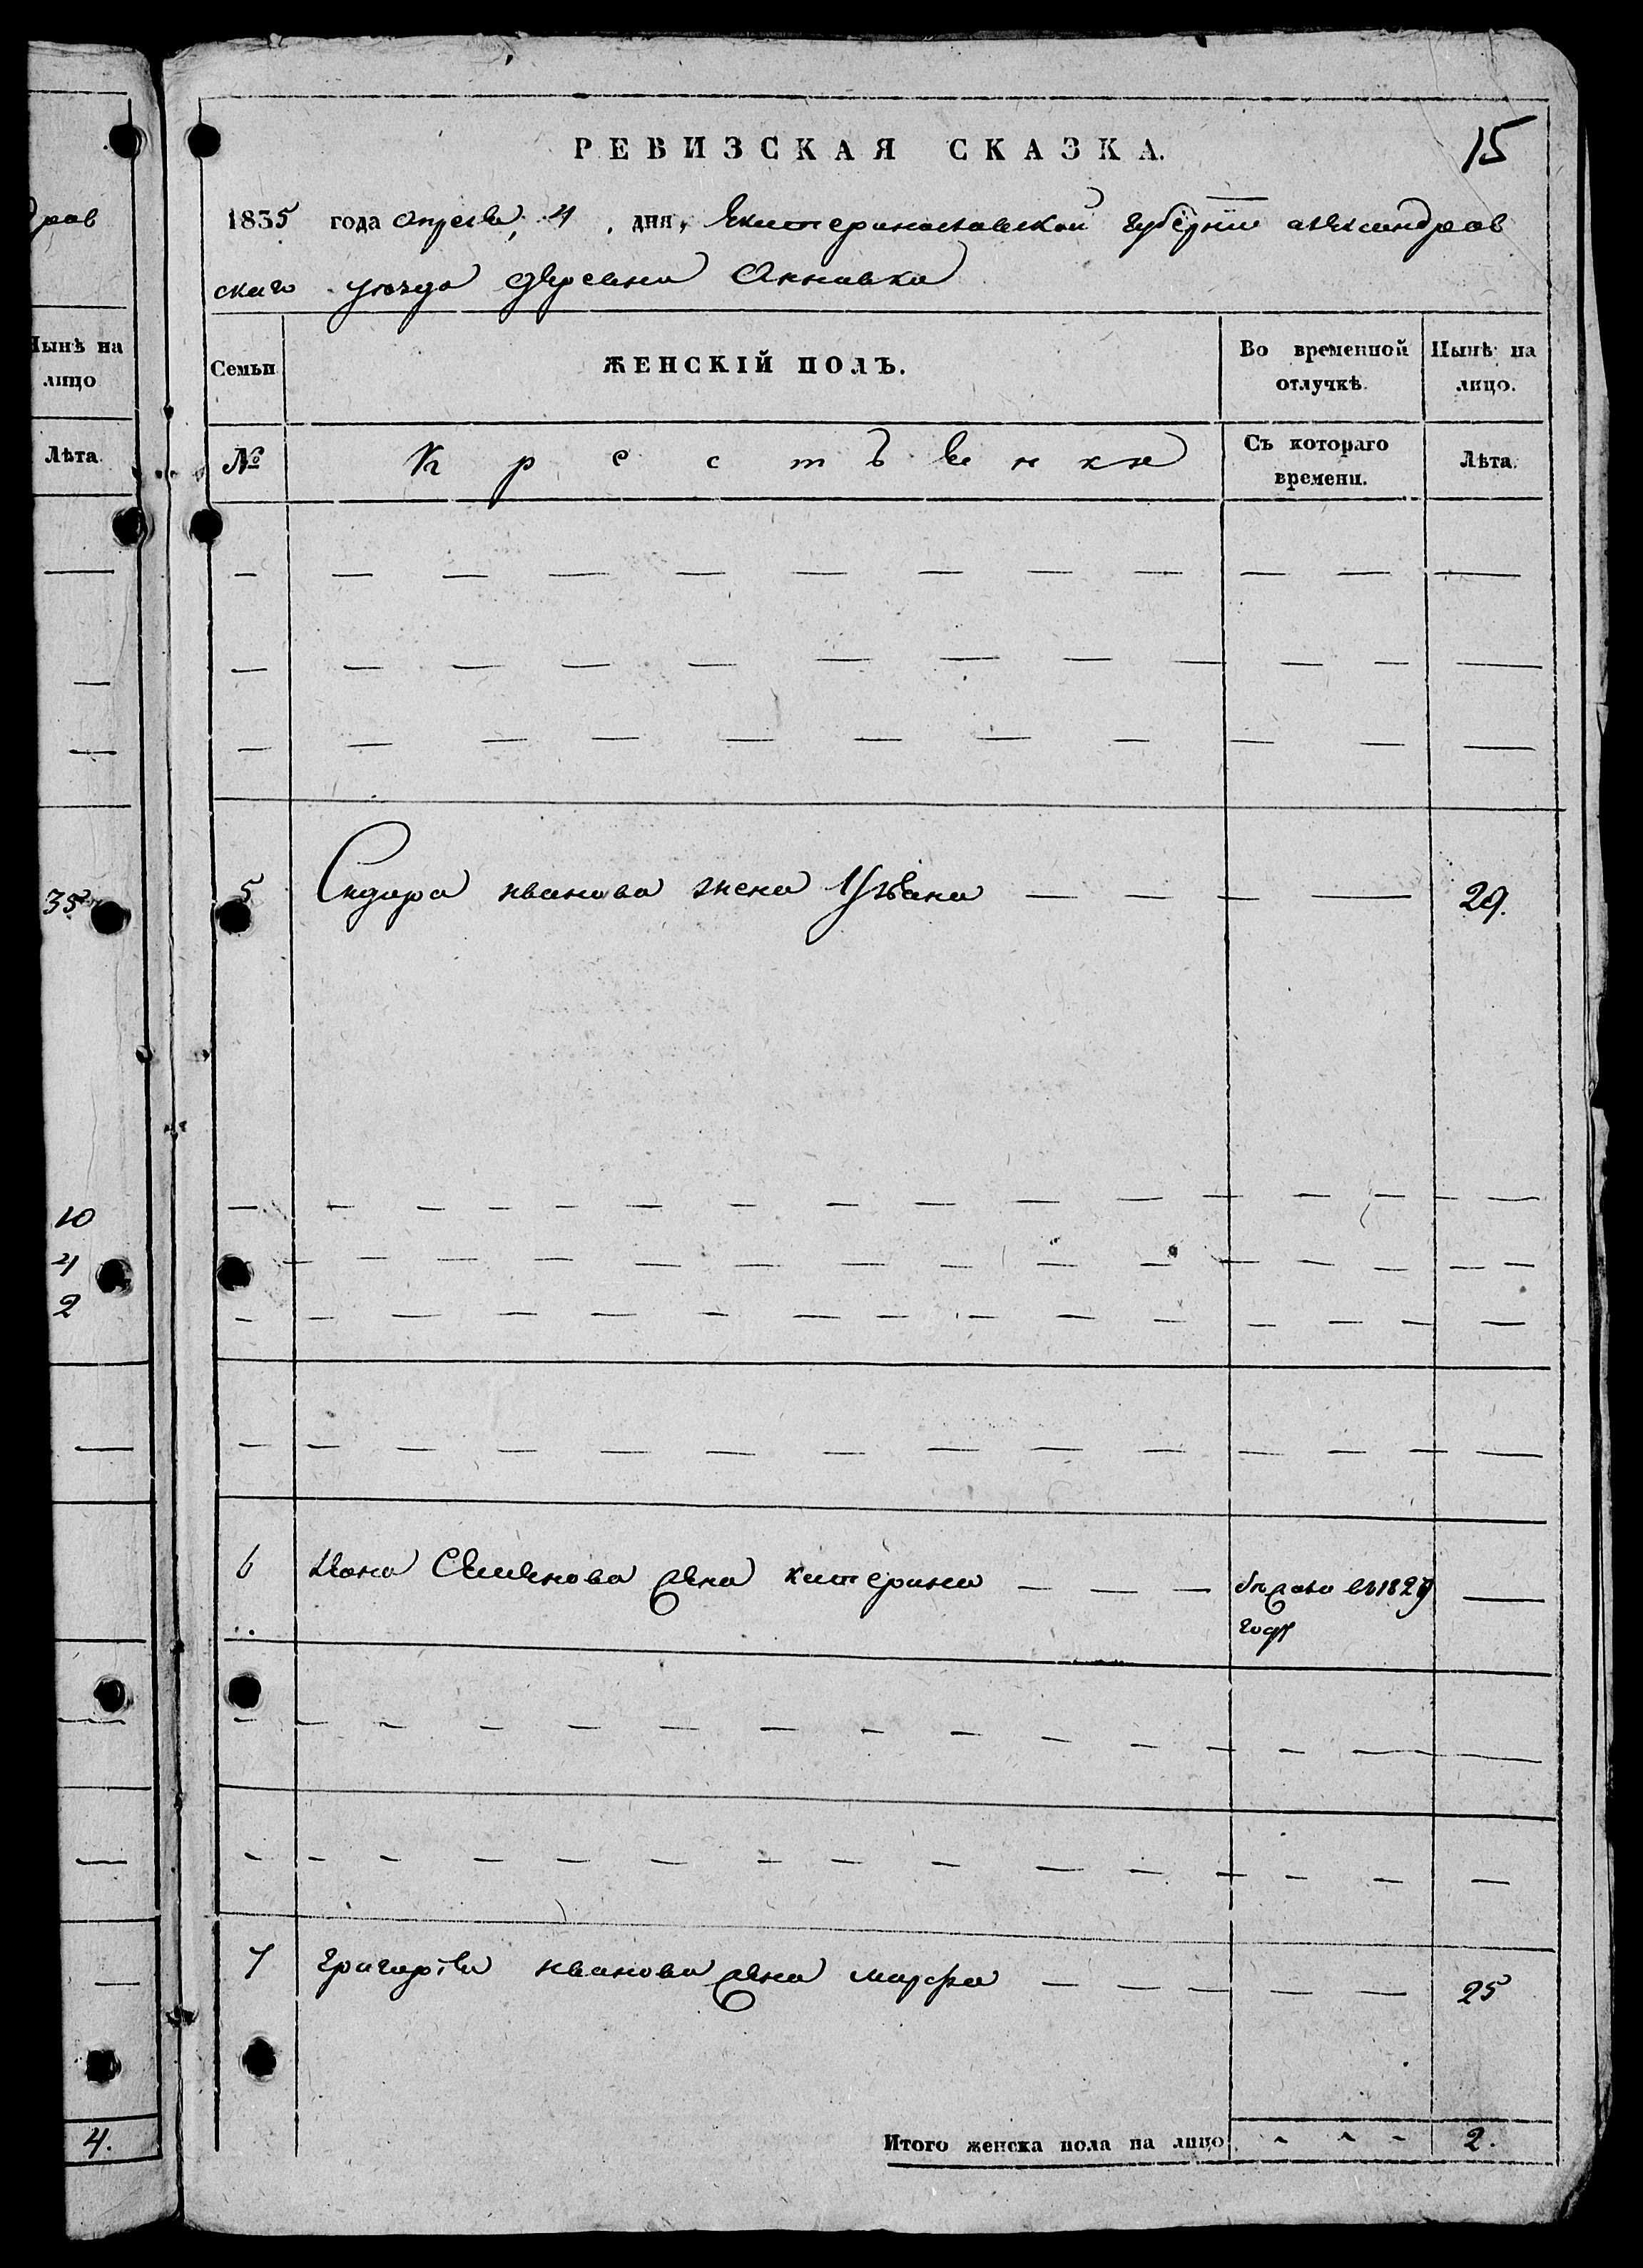 ровъ
Нынѣ на
лицо
Лѣта
35
10
4
2
4.
РЕВИЗСКАЯ СКАЗКА.
15
1835 года апреля 4 дня, Екатеринославской губерніи александров
скаго уезда деревни Анновки
Семьи
ЖЕНСКІЙ ПОЛЪ.
Во временной
отлучкѣ.
Нынѣ на
лицо.
№
Крестьянки
Съ котораго
времени.
Лѣта.
5 Сидора иванова жена Ульяна 29.
6 Ивана Семенова жена катерина въ 1829
году
7 григорія иванова жена марфа 25
Итого женска пола на лицо 2.